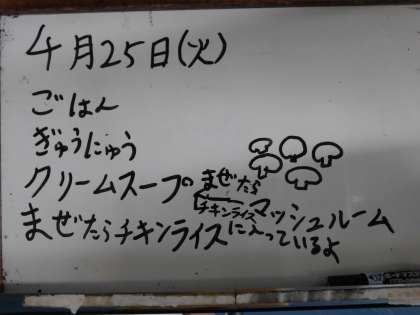 4月25日(火)
ごはん
ぎゅうにゅう
クリームスープ
まぜたらチキンライス
まぜたら
チキンライス
マッシュルーム
に入っているよ